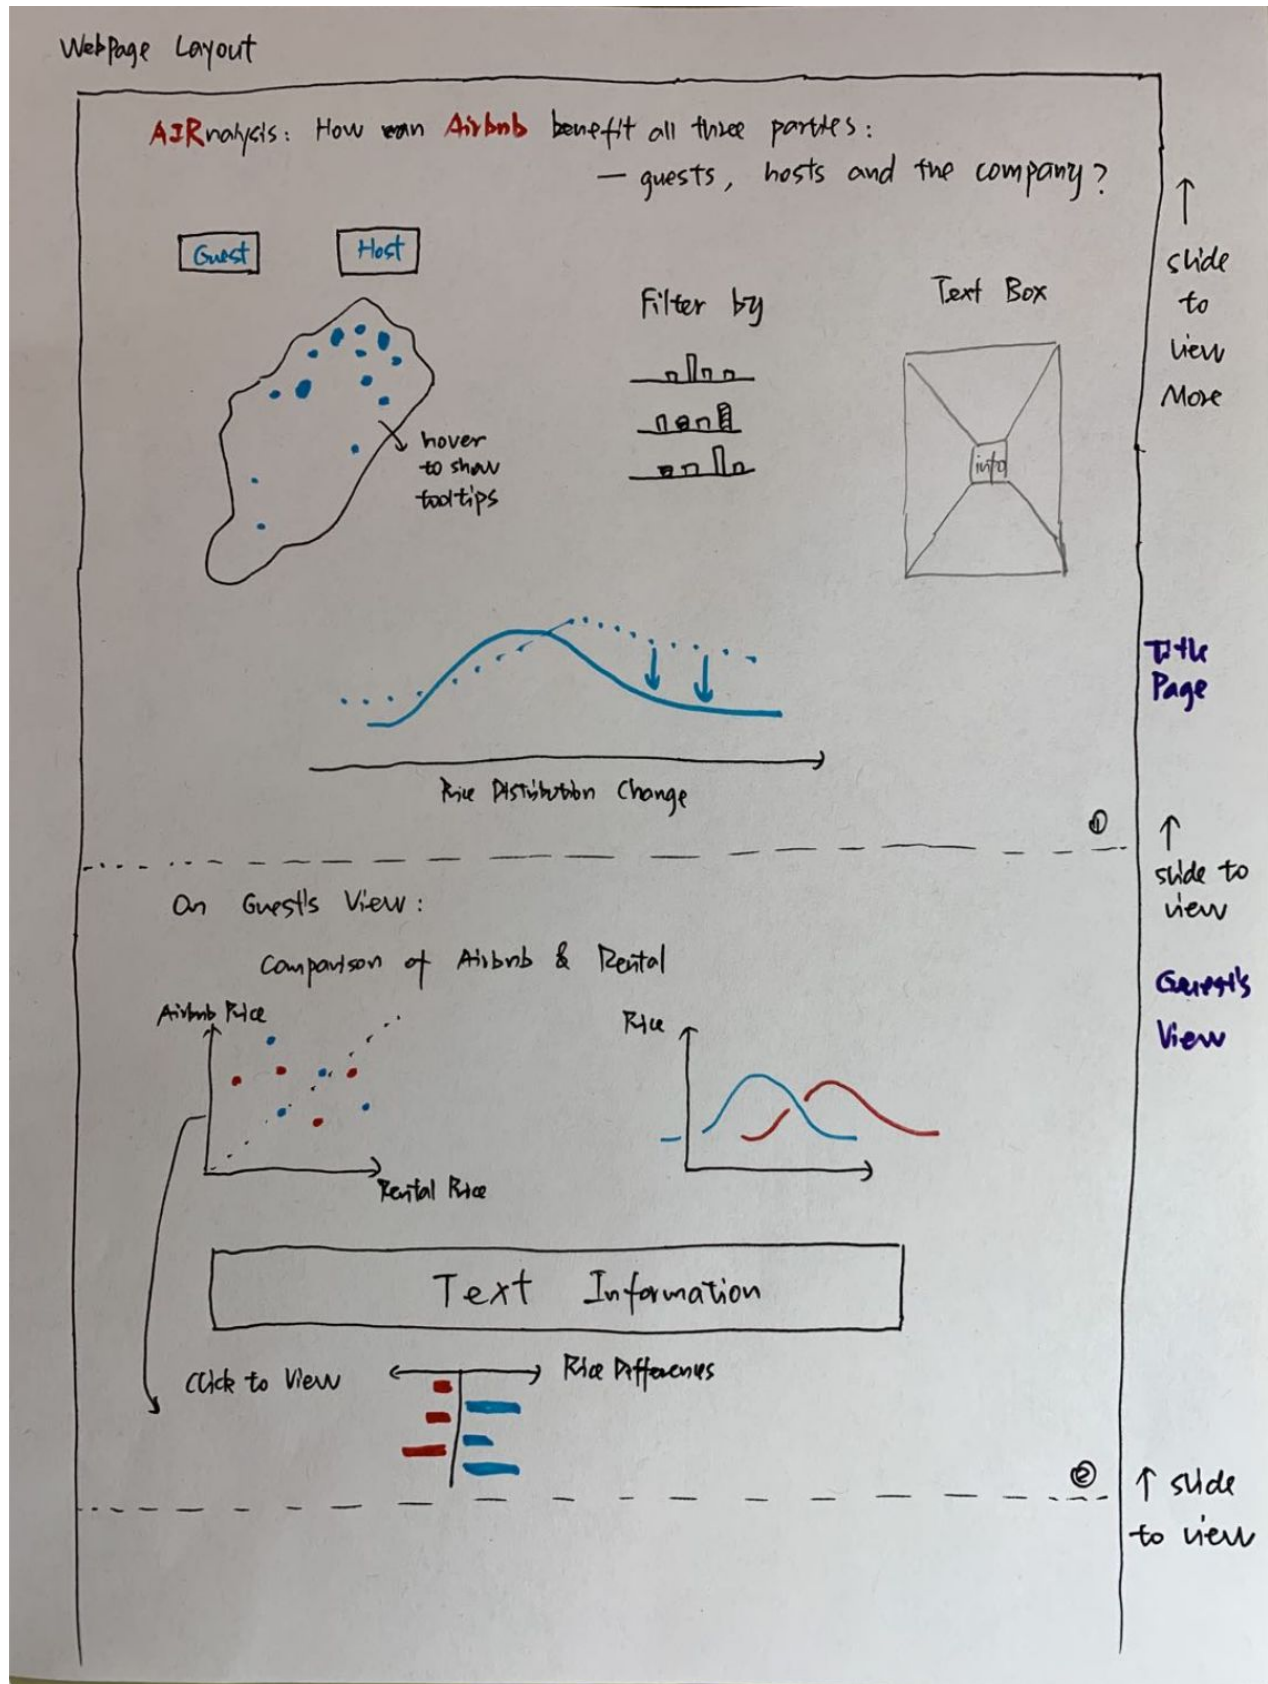 Webpage Layout
AIRnalysis: How can Airbnb benefit all three parties:
— guests, hosts and the company?
Guest
Host
Filter by
Text Box
info
hover
to show
tooltips
↑
slide
to
view
More
Title
Page
Price Distribution Change
①
↑
slide to
view
On Guest's View:
Comparison of Airbnb & Rental
Guest's
View
Airbnb Price
Rental Price
Price
Text Information
Click to View
Price Differences
②
↑ slide
to view